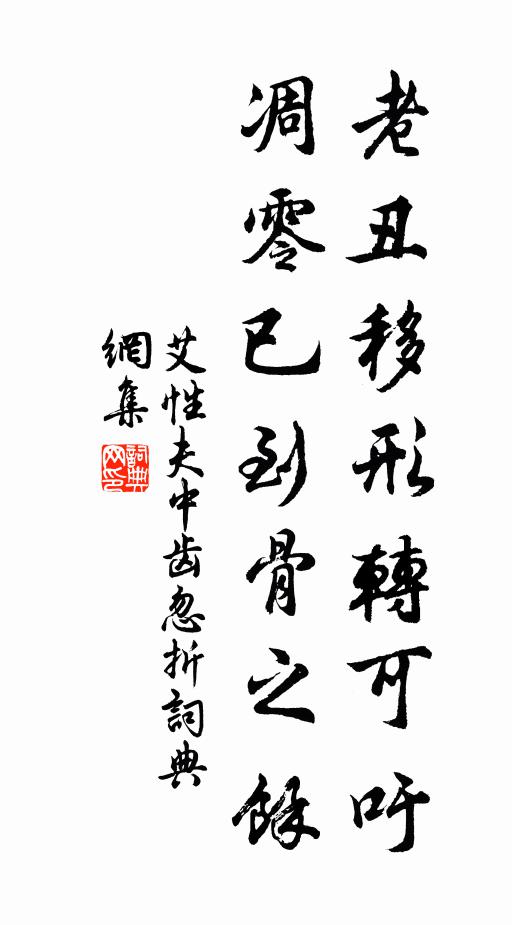 老丑移形轉可吁
凋零已到骨之餘
艾性夫中齿忽折詞典
網集
詞典
网印